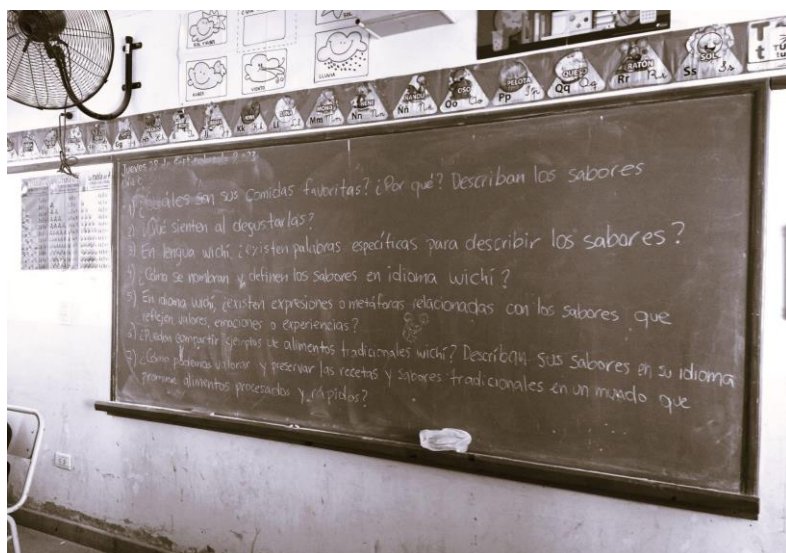 SOL
LLUVIA
VIENTO
Kk
Ll
Mm
Nn
Ññ
OSO
Oo
PELOTA
Pp
QUESO
Qq
RATÓN
Rr
SOL
Ss
T
t
Jueves 28 de septiembre
1) ¿Cuáles son sus comidas favoritas? ¿Por qué? Describan los sabores
2) ¿Qué sienten al degustarlas?
3) En lengua wichí ¿existen palabras específicas para describir los sabores?
4) ¿Cómo se nombran y definen los sabores en idioma wichí?
5) En idioma wichí, ¿existen expresiones o metáforas relacionadas con los sabores que
reflejen valores, emociones o experiencias?
6) ¿Pueden compartir ejemplos de alimentos tradicionales wichí? Describan sus sabores en su idioma
7) ¿Cómo podríamos valorar y preservar las recetas y sabores tradicionales en un mundo que
promueve alimentos procesados y rápidos?